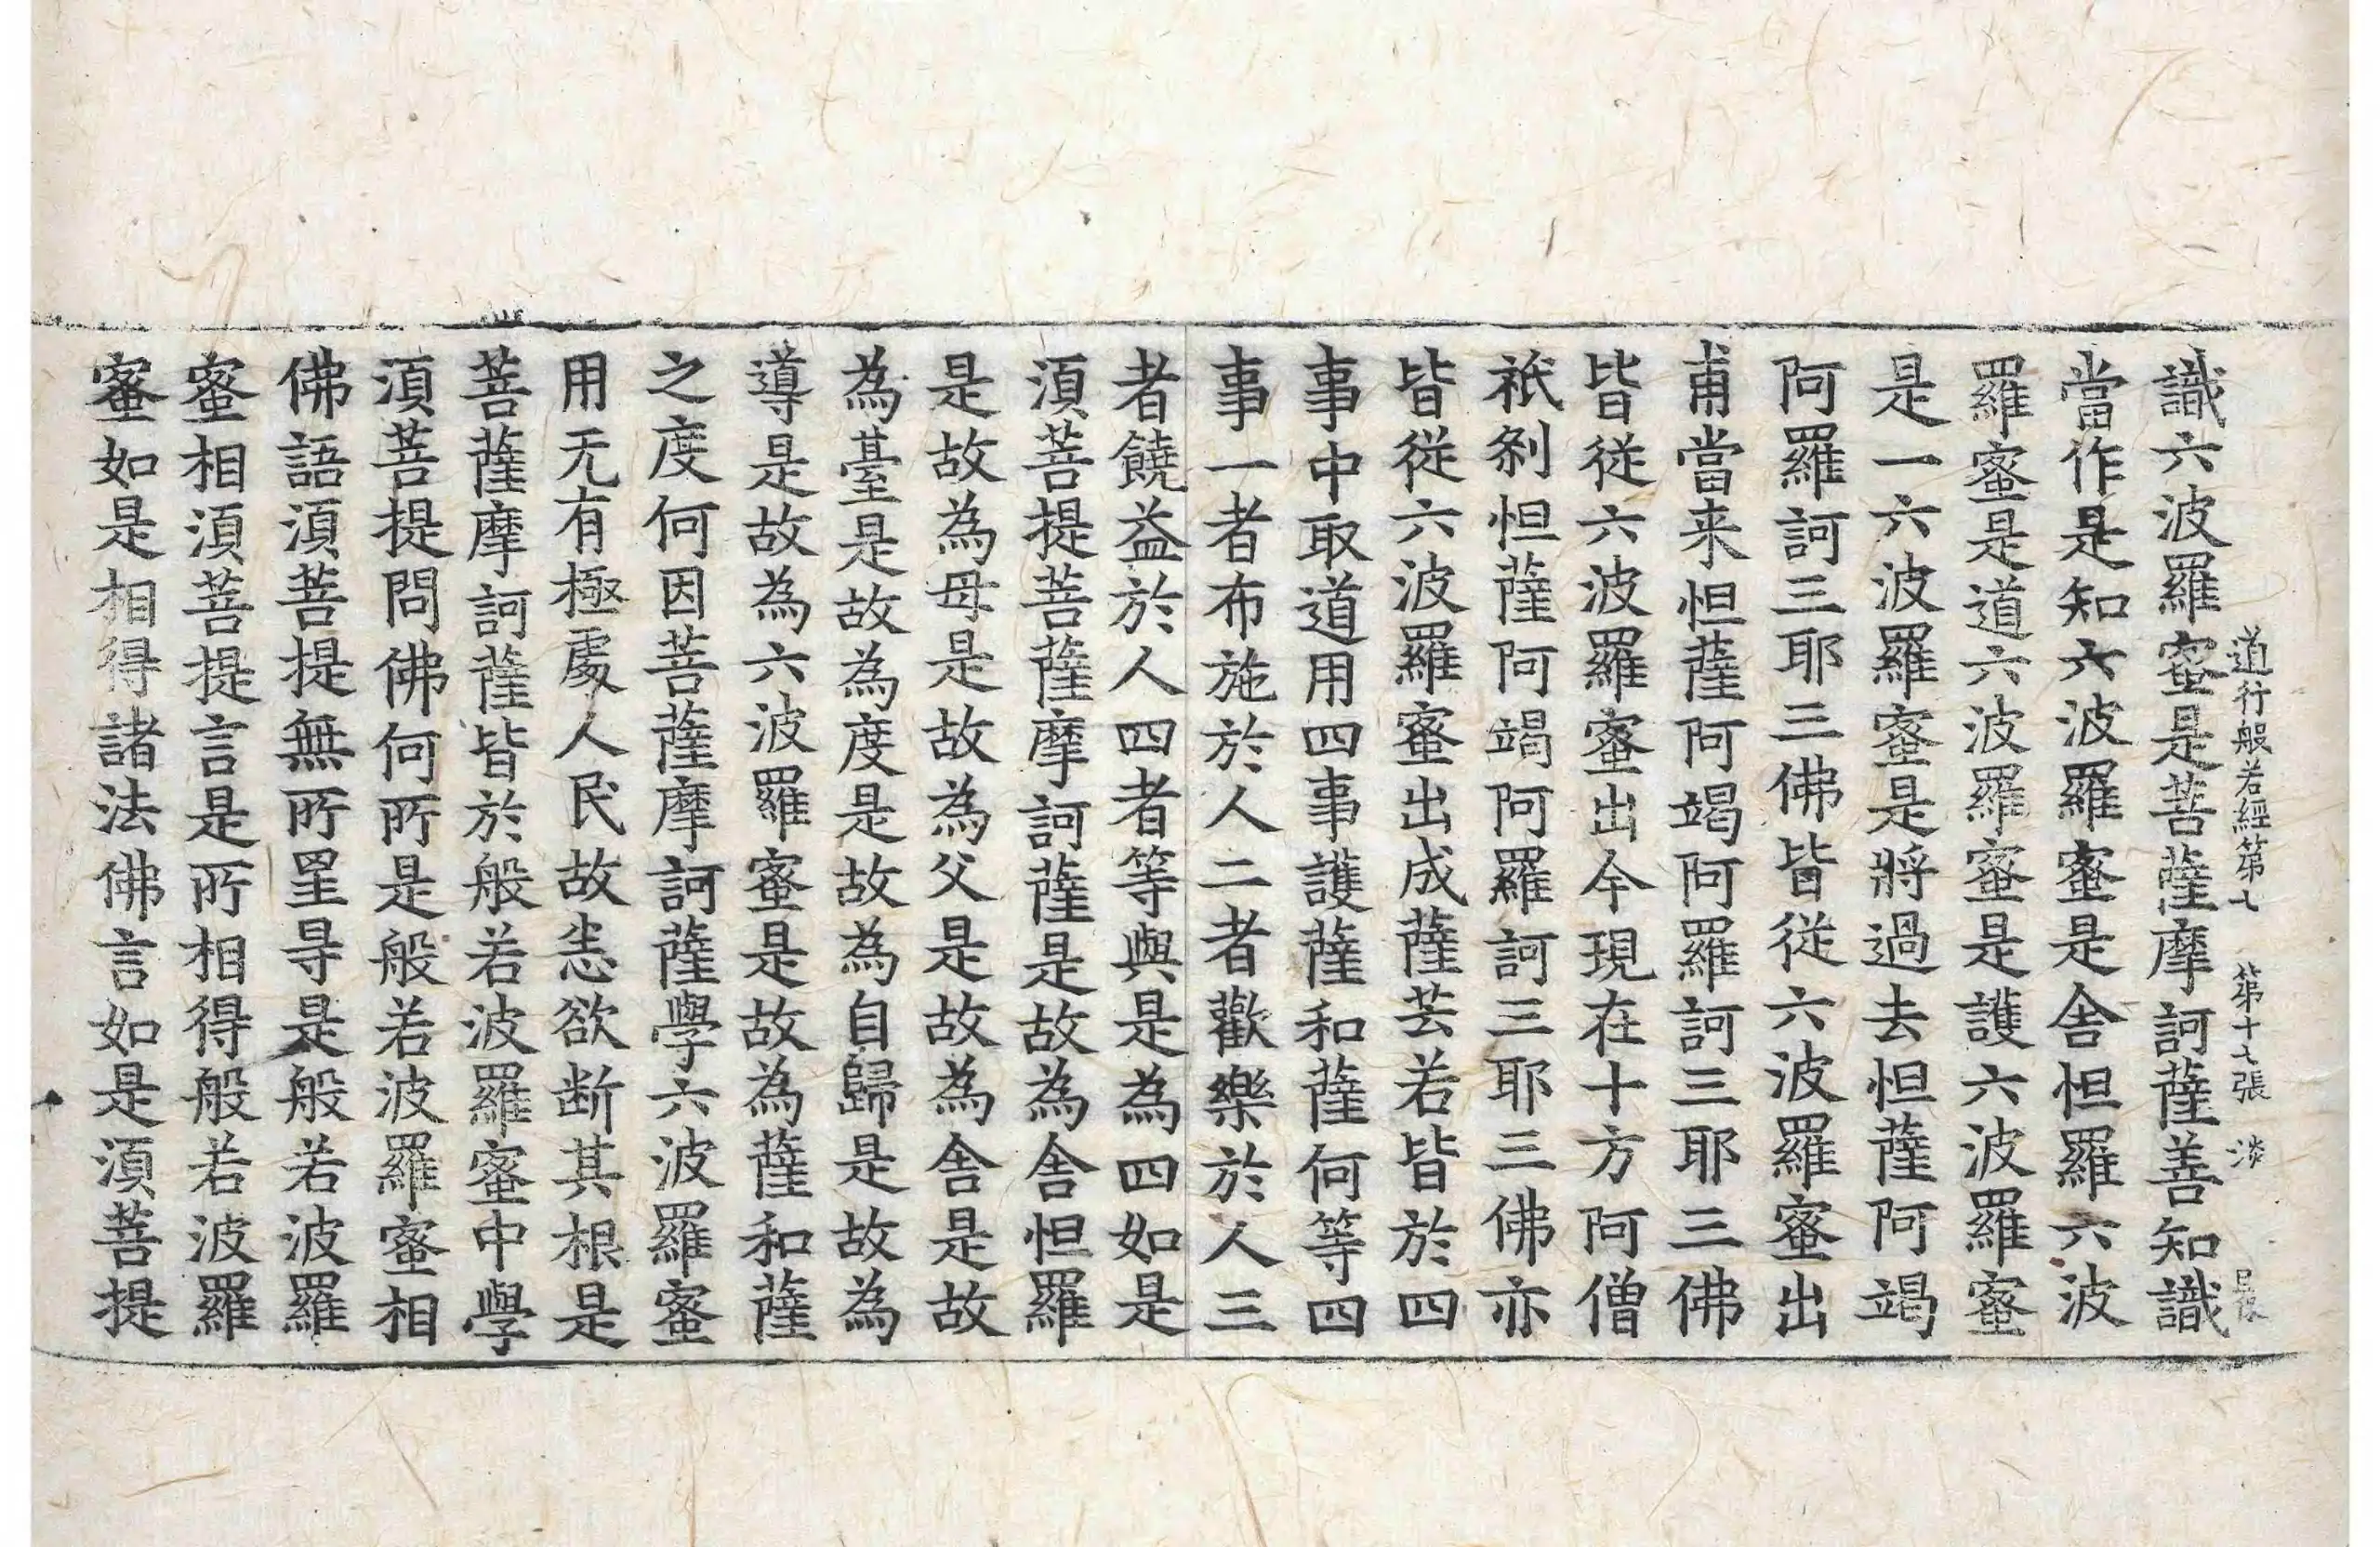 道行般若經第七　第十七張　淡
識六波羅蜜是菩薩摩訶薩善知識
當作是知六波羅蜜是舍怛羅六波
羅蜜是道六波羅蜜是護六波羅蜜
是一六波羅蜜是將過去怛薩阿竭
阿羅訶三耶三佛皆從六波羅蜜出
甫當来怛薩阿竭阿羅訶三耶三佛
皆從六波羅蜜出今現在十方阿僧
祇剎怛薩阿竭阿羅訶三耶三佛亦
皆從六波羅蜜出成薩芸若皆於四
事中取道用四事護薩和薩何等四
事一者布施於人二者歡樂於人三
者饒益於人四者等與是為四如是
湏菩提菩薩摩訶薩是故為舍怛羅
是故為母是故為父是故為舍是故
為臺是故為度是故為自歸是故為
導是故為六波羅蜜是故為薩和薩
之度何因菩薩摩訶薩學六波羅蜜
用无有極處人民故恚欲断其根是
菩薩摩訶薩皆於般若波羅蜜中學
湏菩提問佛何所是般若波羅蜜相
佛語湏菩提無所罣㝵是般若波羅
蜜相湏菩提言是所相得般若波羅
蜜如是相得諸法佛言如是湏菩提